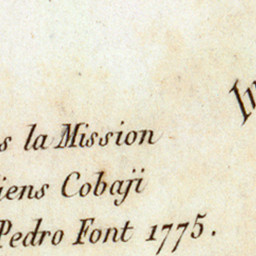 s la Mission
iens Cobaji
Pedro Font 1775.
In